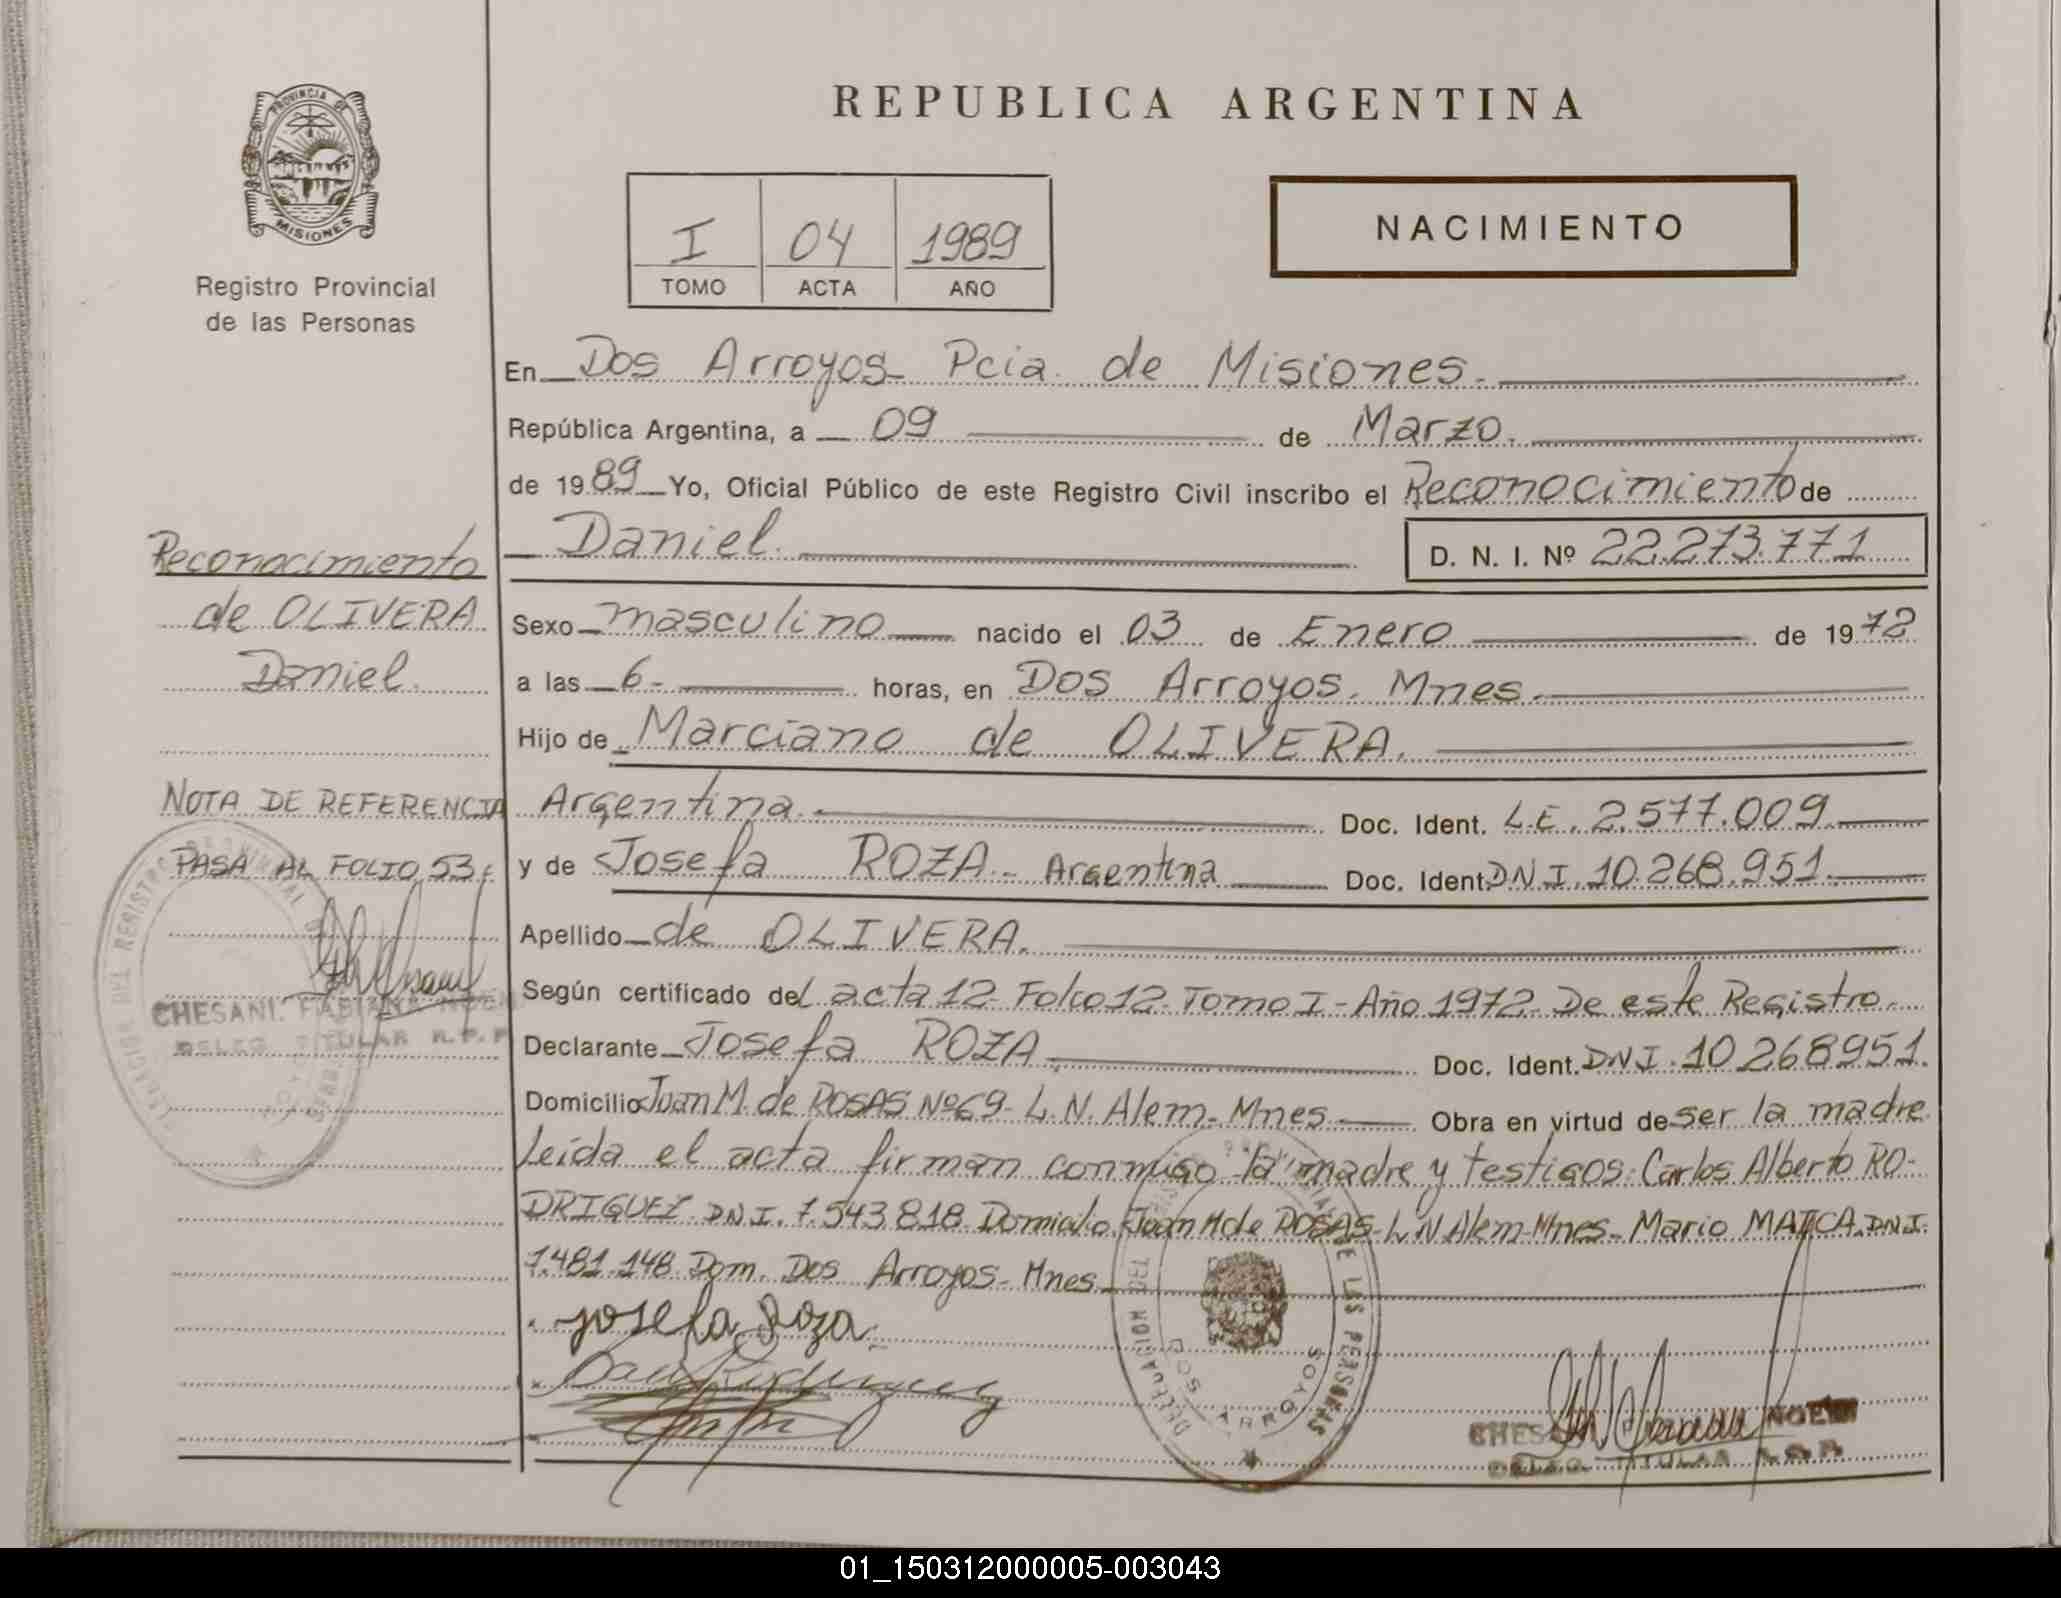 REPUBLICA ARGENTINA
PROVINCIA DE
MISIONES
Registro Provincial
de las Personas
I 04 1989
TOMO ACTA AÑO
NACIMIENTO
En Dos Arroyos- Pcia. de Misiones.
República Argentina, a 09 de Marzo.
de 1989 Yo, Oficial Público de este Registro Civil inscribo el Reconocimiento de
Daniel. D. N. I. Nº 22.273.771
Reconocimiento
de OLIVERA
Daniel.
Sexo masculino nacido el 03 de Enero de 1972
a las 6- horas, en Dos Arroyos. Mnes.
Hijo de Marciano de OLIVERA.
NOTA DE REFERENCIA
PASA AL FOLIO 53.
Argentina. Doc. Ident. L.E. 2.577.009
y de Josefa ROZA.- Argentina Doc. Ident. DNI. 10.268.951.
Apellido de OLIVERA.
CHESANI. FABIANA NOEMI
DELEG TITULAR R.P.P
Según certificado del acta 12- Folio 12- Tomo I- Año 1972- De este Registro.
Declarante Josefa ROZA Doc. Ident. DNI. 10.268951.
Domicilio Juan M. de ROSAS Nº 69- L.N. Alem- Mnes. Obra en virtud de ser la madre
Leída el acta firman conmigo la madre y testigos: Carlos Alberto RO-
DRIGUEZ. DNI. 7.543818. Domicilio Juan M de ROSAS- L N Alem- Mnes- Mario DNI.
1.481.148. Dom. Dos Arroyos- Mnes
josefa Roza
DELEGACION DEL REGISTRO PROVINCIAL DE LAS PERSONAS
DOS ARROYOS
TITULAR
01_150312000005-003043